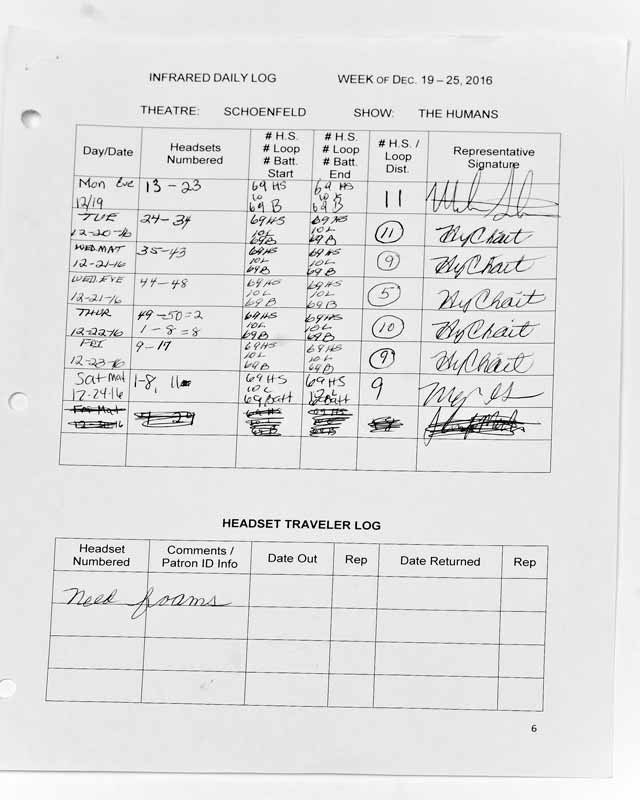 INFRARED DAILY LOG WEEK OF DEC. 19 – 25, 2016
THEATRE: SCHOENFELD SHOW: THE HUMANS
Day/Date Headsets Numbered # H.S. # Loop # Batt. Start # H.S. # Loop # Batt. End # H.S. / Loop Dist. Representative Signature
Mon Eve 12/19 13 – 23 69 HS 10 69 B 69 HS 10 69 B 11
TUE 12-20-16 24 – 34 69 HS 10 L 69 B 69 HS 10 L 69 B 11
WED.MAT 12-21-16 35 – 43 69 HS 10 L 69 B 69 HS 10 L 69 B 9
WED.EVE 12-21-16 44 – 48 69 HS 10 L 69 B 69 HS 10 L 69 B 5
THUR 12-22-16 49 – 50 = 2 1 – 8 = 8 69 HS 10 L 69 B 69 HS 10 L 69 B 10
FRI 12-23-16 9 – 17 69 HS 10 L 69 B 69 HS 10 L 69 B 9
Sat Mat 12-24-16 1-8, 11 69 HS 10 L 69 Batt 69 HS Batt 9
HEADSET TRAVELER LOG
Headset Numbered Comments / Patron ID Info Date Out Rep Date Returned Rep
Need foams
6